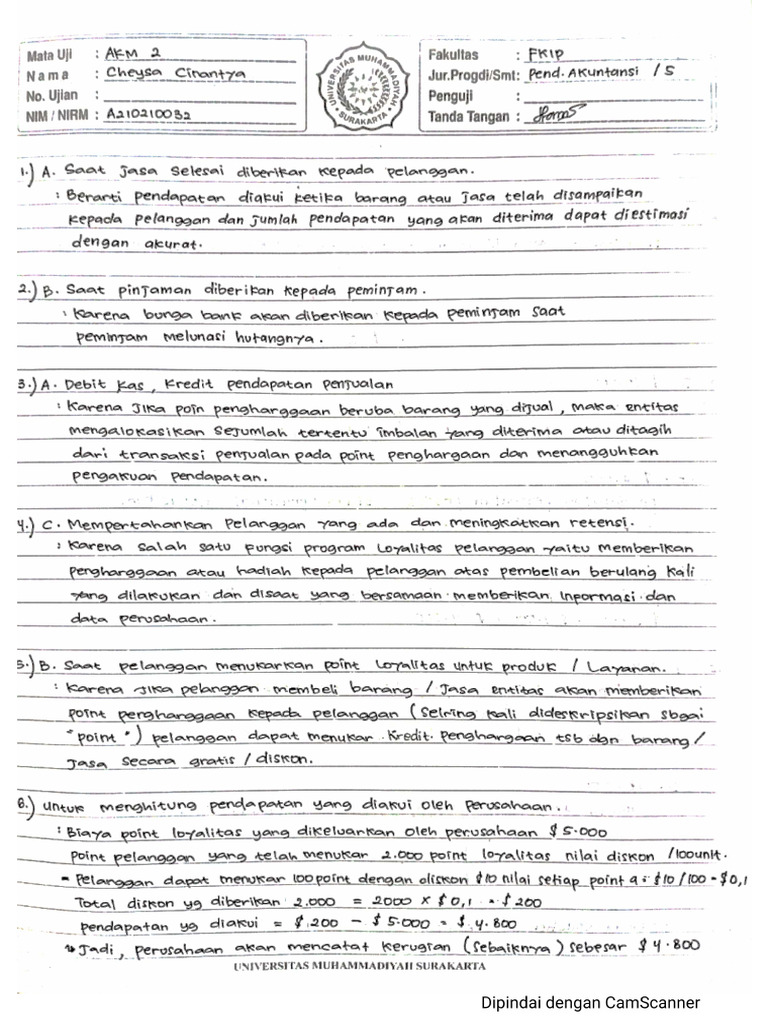 Mata Uji : AKM 2
Nama : Cheysa Cinantya
No. Ujian :
NIM / NIRM : A210210032
UNIVERSITAS MUHAMMADIYAH
SURAKARTA
Fakultas : FKIP
Jur.Progdi/Smt : Pend. Akuntansi / 5
Penguji :
Tanda Tangan :
1.) A. Saat jasa selesai diberikan kepada pelanggan.
: Berarti pendapatan diakui ketika barang atau jasa telah disampaikan
kepada pelanggan dan jumlah pendapatan yang akan diterima dapat diestimasi
dengan akurat.
2.) B. Saat pinjaman diberikan kepada peminjam.
: Karena bunga bank akan diberikan kepada peminjam saat
peminjam melunasi hutangnya.
3.) A. Debit kas, Kredit pendapatan penjualan
: Karena jika poin pengharggaan beruba barang yang dijual, maka entitas
mengalokasikan sejumlah tertentu imbalan yang diterima atau ditagih
dari transaksi penjualan pada point penghargaan dan menangguhkan
pengakuan pendapatan.
4.) C. Mempertahankan pelanggan yang ada dan meningkatkan retensi.
: Karena salah satu fungsi program loyalitas pelanggan yaitu memberikan
pengharggaan atau hadiah kepada pelanggan atas pembelian berulang kali
yang dilakukan dan disaat yang bersamaan memberikan informasi dan
data perusahaan.
5.) B. Saat pelanggan menukarkan point loyalitas untuk produk / Layanan.
: Karena jika pelanggan membeli barang / jasa entitas akan memberikan
point penghargaan kepada pelanggan (selring kali dideskripsikan sbgai
"point") pelanggan dapat menukar kredit penghargaan tsb dgn barang /
jasa secara gratis / diskon.
6.) Untuk menghitung pendapatan yang diakui oleh perusahaan.
: Biaya point loyalitas yang dikeluarkan oleh perusahaan $ 5.000
point pelanggan yang telah menukar 2.000 point loyalitas nilai diskon /100unit.
- Pelanggan dapat menukar 100 point dengan diskon $10 nilai setiap point a = $10 / 100 = $0,1
Total diskon yg diberikan 2.000 = 2000 x $ 0,1 = $ 200
pendapatan yg diakui = $ 200 - $ 5.000 = $ 4.800
↳ Jadi, perusahaan akan mencatat kerugian (sebaiknya) sebesar $ 4.800
UNIVERSITAS MUHAMMADIYAH SURAKARTA
Dipindai dengan CamScanner